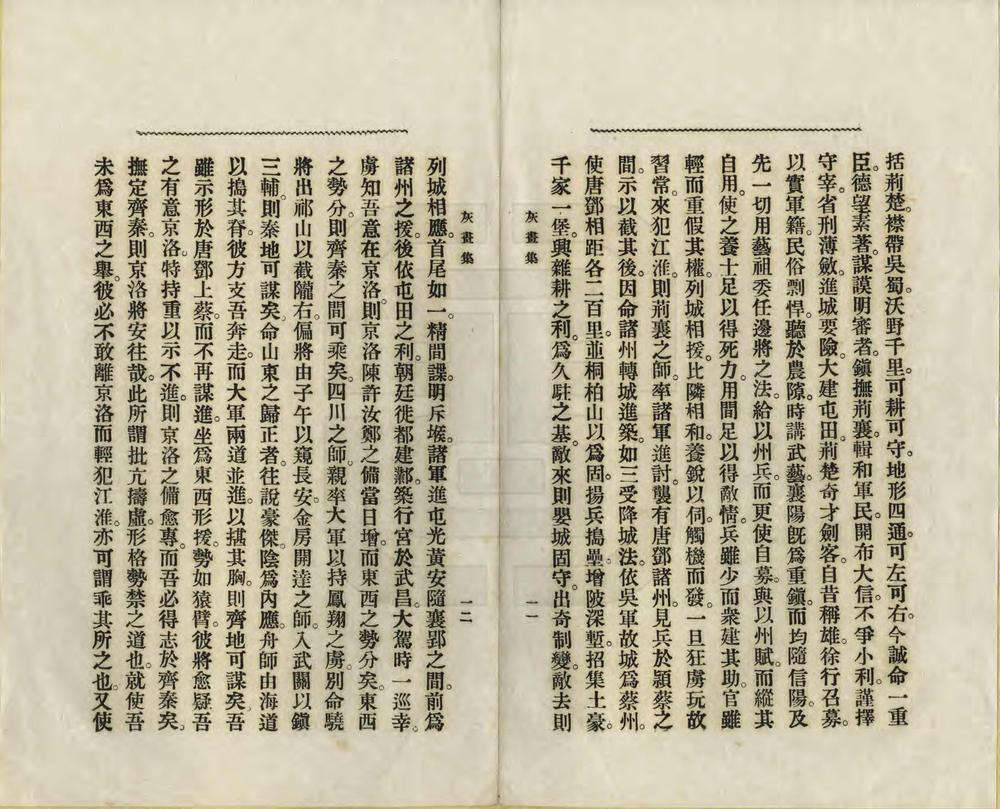 括荊楚。襟帶吳蜀。沃野千里。可耕可守。地形四通。可左可右。今誠命一重
臣。德望素著。謀謨明審者。鎭撫荊襄。輯和軍民。開布大信。不爭小利。謹擇
守宰。省刑薄斂。進城要險。大建屯田。荊楚奇才劍客。自昔稱雄。徐行召募。
以實軍籍。民俗剽悍。聽於農隙。時講武藝。襄陽旣爲重鎭。而均隨信陽。及
先一切用藝祖委任邊將之法。給以州兵。而更使自募。與以州賦。而縱其
自用。使之養士足以得死力。用間足以得敵情。兵雖少而衆建其助。官雖
輕而重假其權。列城相援。比隣相和。養銳以伺。觸機而發。一旦狂虜玩故
習常。來犯江淮。則荊襄之師。率諸軍進討。襲有唐鄧諸州。見兵於潁蔡之
間。示以截其後。因命諸州轉城進築。如三受降城法。依吳軍故城爲蔡州。
使唐鄧相距各二百里。並桐柏山以爲固。揚兵搗壘。增陂深塹。招集土豪。
千家一堡。興雜耕之利。爲久駐之基。敵來則嬰城固守。出奇制變。敵去則
灰畫集
一一
灰畫集
一二
列城相應。首尾如一。精間諜。明斥堠。諸軍進屯光黃安隨襄郢之間。前爲
諸州之援。後依屯田之利。朝廷徙都建鄴。築行宮於武昌。大駕時一巡幸。
虜知吾意在京洛。則京洛陳許汝鄭之備當日增。而東西之勢分矣。東西
之勢分。則齊秦之間可乘矣。四川之師。親率大軍以持鳳翔之虜。別命驍
將出祁山以截隴右。偏將由子午以窺長安。金房開達之師。入武關以鎭
三輔。則秦地可謀矣。命山東之歸正者。往說豪傑。陰爲內應。舟師由海道
以搗其脊。彼方支吾奔走。而大軍兩道並進。以揕其胸。則齊地可謀矣。吾
雖示形於唐鄧上蔡。而不再謀進。坐爲東西形援。勢如猿臂。彼將愈疑吾
之有意京洛。特持重以示不進。則京洛之備愈專。而吾必得志於齊秦矣。
撫定齊秦。則京洛將安往哉。此所謂批亢擣虛。形格勢禁之道也。就使吾
未爲東西之舉。彼必不敢離京洛而輕犯江淮。亦可謂乖其所之也。又使